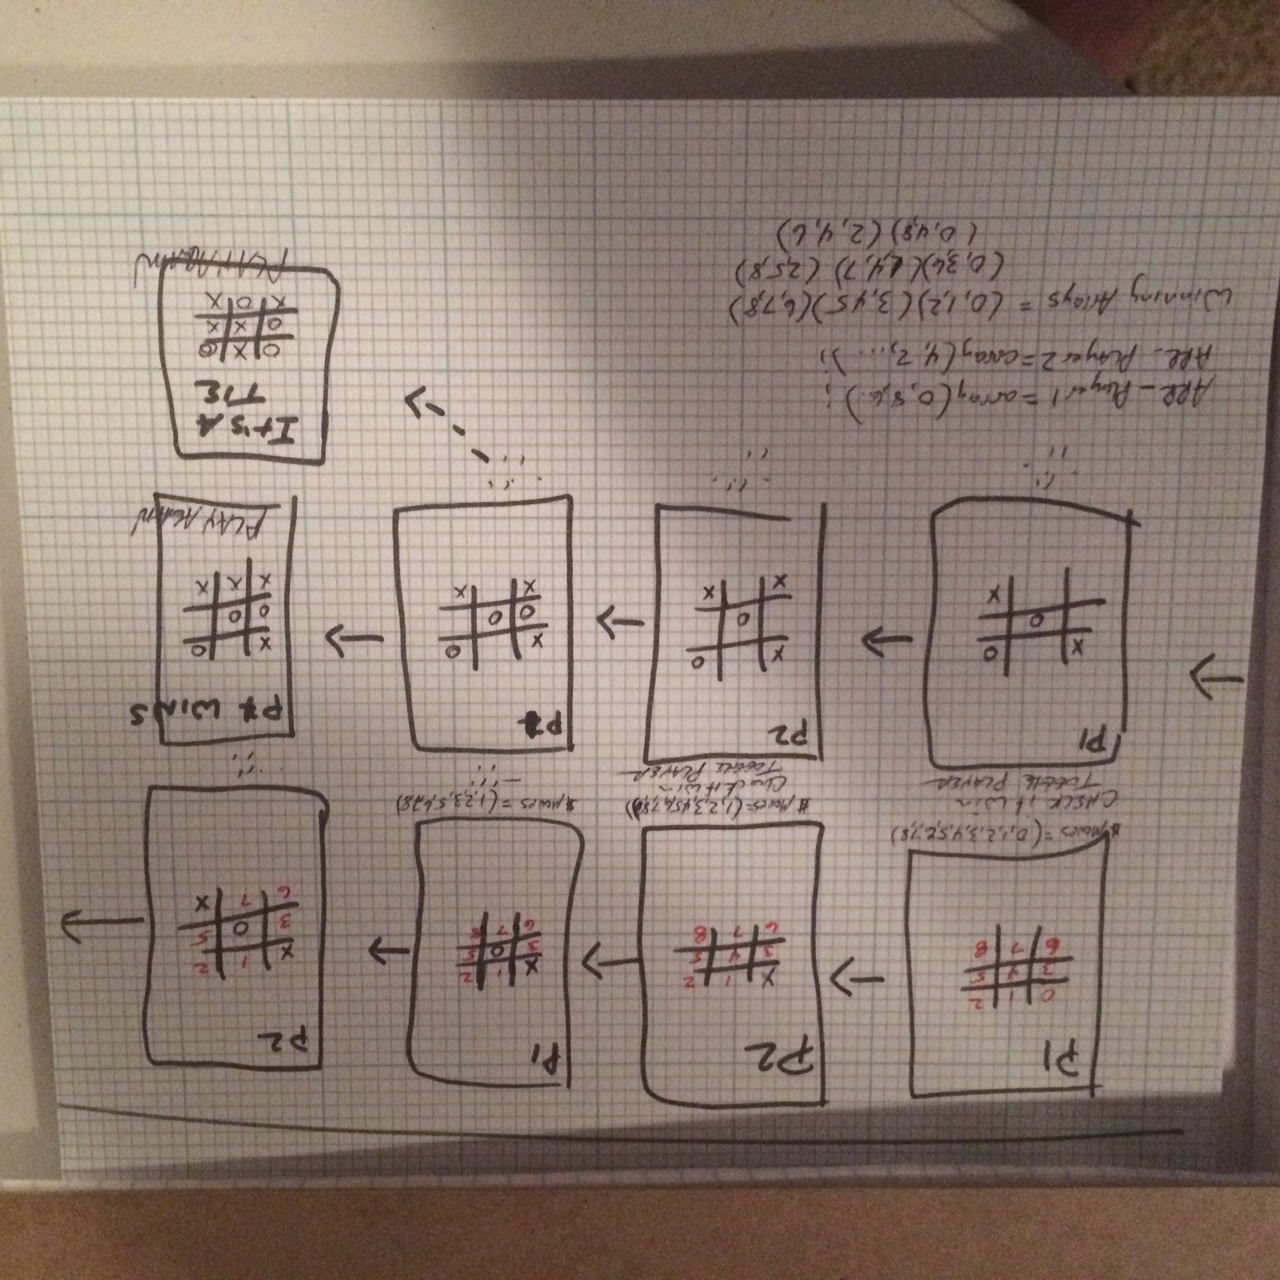 P1
0 1 2
3 4 5
6 7 8
$Moves = (0,1,2,3,4,5,6,7,8)
CHECK if Win
TOGGLE PLAYER
P2
X 1 2
3 4 5
6 7 8
$Moves = (1,2,3,4,5,6,7,8)
Check if Win
TOGGLE PLAYER
P1
X 1 2
3 O 5
6 7 8
$Moves = (1,2,3,5,6,7,8)
P2
X 1 2
3 O 5
6 7 X
P1
X O
O
X
P2
X O
O
X X
P1
X O
O O
X X
P1 WINS
X O
O O
X X X
PLAY AGAIN
It's A
TIE
O X O
O X X
X O X
PLAY AGAIN
ARR_Player1 = array(0,8,6..);
ARR_Player2 = array(4,2,...);
Winning Arrays = (0,1,2)(3,4,5)(6,7,8)
(0,3,6)(1,4,7) (2,5,8)
(0,4,8)(2,4,6)